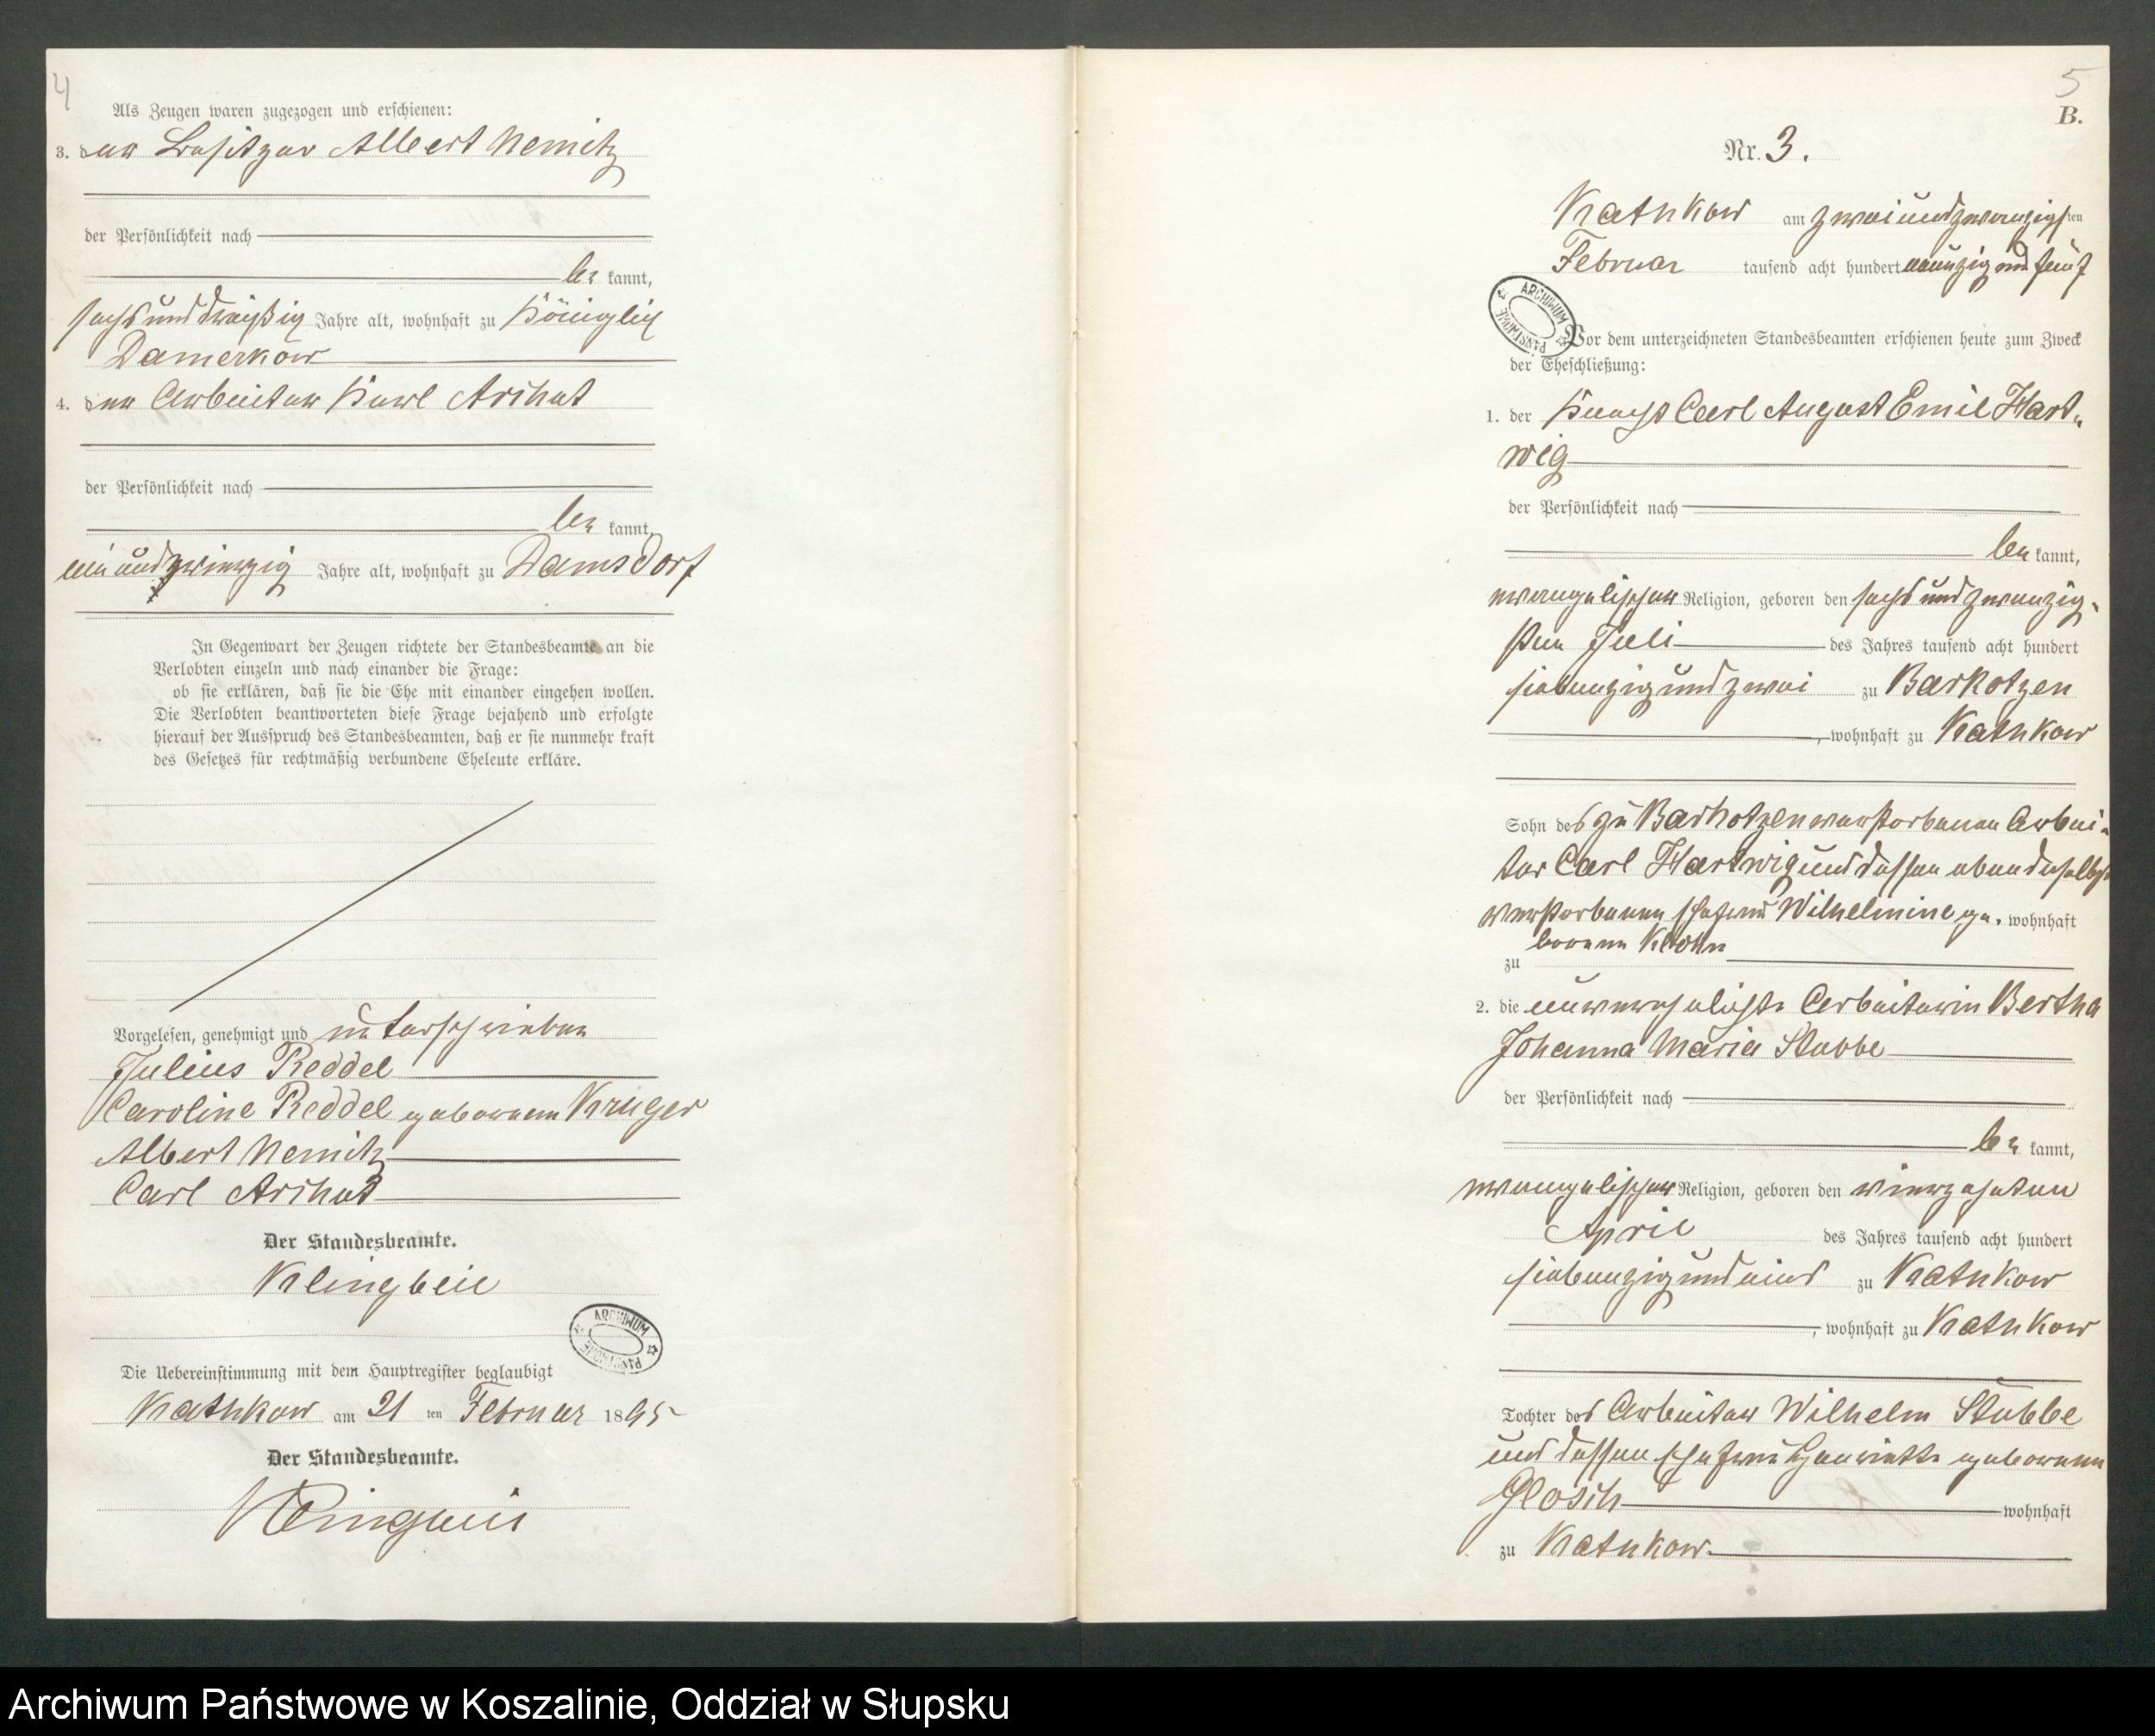 4
Als Zeugen waren zugezogen und erschienen:
3. der Besitzer Albert Nemitz
der Persönlichkeit nach
be kannt,
sechsunddreißig Jahre alt, wohnhaft zu Königlich
Damerkow
4. der Arbeiter Karl
der Persönlichkeit nach
be kannt,
ein und vierzig Jahre alt, wohnhaft zu Damsdorf
In Gegenwart der Zeugen richtete der Standesbeamte an die
Verlobten einzeln und nach einander die Frage:
ob sie erklären, daß sie die Ehe mit einander eingehen wollen.
Die Verlobten beantworteten diese Frage bejahend und erfolgte
hierauf der Ausspruch des Standesbeamten, daß er sie nunmehr kraft
des Gesetzes für rechtmäßig verbundene Eheleute erkläre.
Vorgelesen, genehmigt und unterschrieben
Julius Reddel
Caroline Reddel geborene Krüger
Albert Nemitz
Carl
Der Standesbeamte.
Klingbeil
ARCHIWUM PAŃSTWOWE
Die Uebereinstimmung mit dem Hauptregister beglaubigt
Kathkow am 21 ten Februar 1895
Der Standesbeamte.
Klingbeil
5
B.
Nr. 3.
Kathkow am zweiundzwanzigsten
Februar tausend acht hundert neunzig und fünf
ARCHIWUM PAŃSTWOWE
Vor dem unterzeichneten Standesbeamten erschienen heute zum Zweck
der Eheschließung:
1. der Knecht Carl August Emil Hart-
wig
der Persönlichkeit nach
be kannt,
evangelischer Religion, geboren den sechs und zwanzig-
sten Juli des Jahres tausend acht hundert
siebenzig und zwei zu Barkotzen
, wohnhaft zu Kathkow
Sohn des zu Barkotzen verstorbenen Arbei-
ter Carl Hartwig und dessen ebendaselbst
verstorbenen Ehefrau Wilhelmine ge- wohnhaft
borenen
zu
2. die unverehelichte Arbeiterin Bertha
Johanna Maria Stubbe
der Persönlichkeit nach
be kannt,
evangelischer Religion, geboren den vierzehnten
April des Jahres tausend acht hundert
siebenzig und eins zu Kathkow
, wohnhaft zu Kathkow
Tochter des Arbeiter Wilhelm Stubbe
und dessen Ehefrau Henriette geborenen
Glosch wohnhaft
zu Kathkow.
Archiwum Państwowe w Koszalinie, Oddział w Słupsku